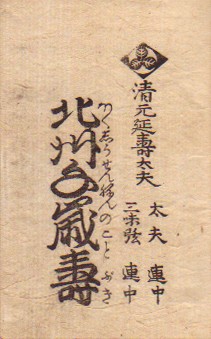 清元延壽太夫
太夫 連中
三味弦 連中
北州千歳壽
ほくしうせんねんのことぶき